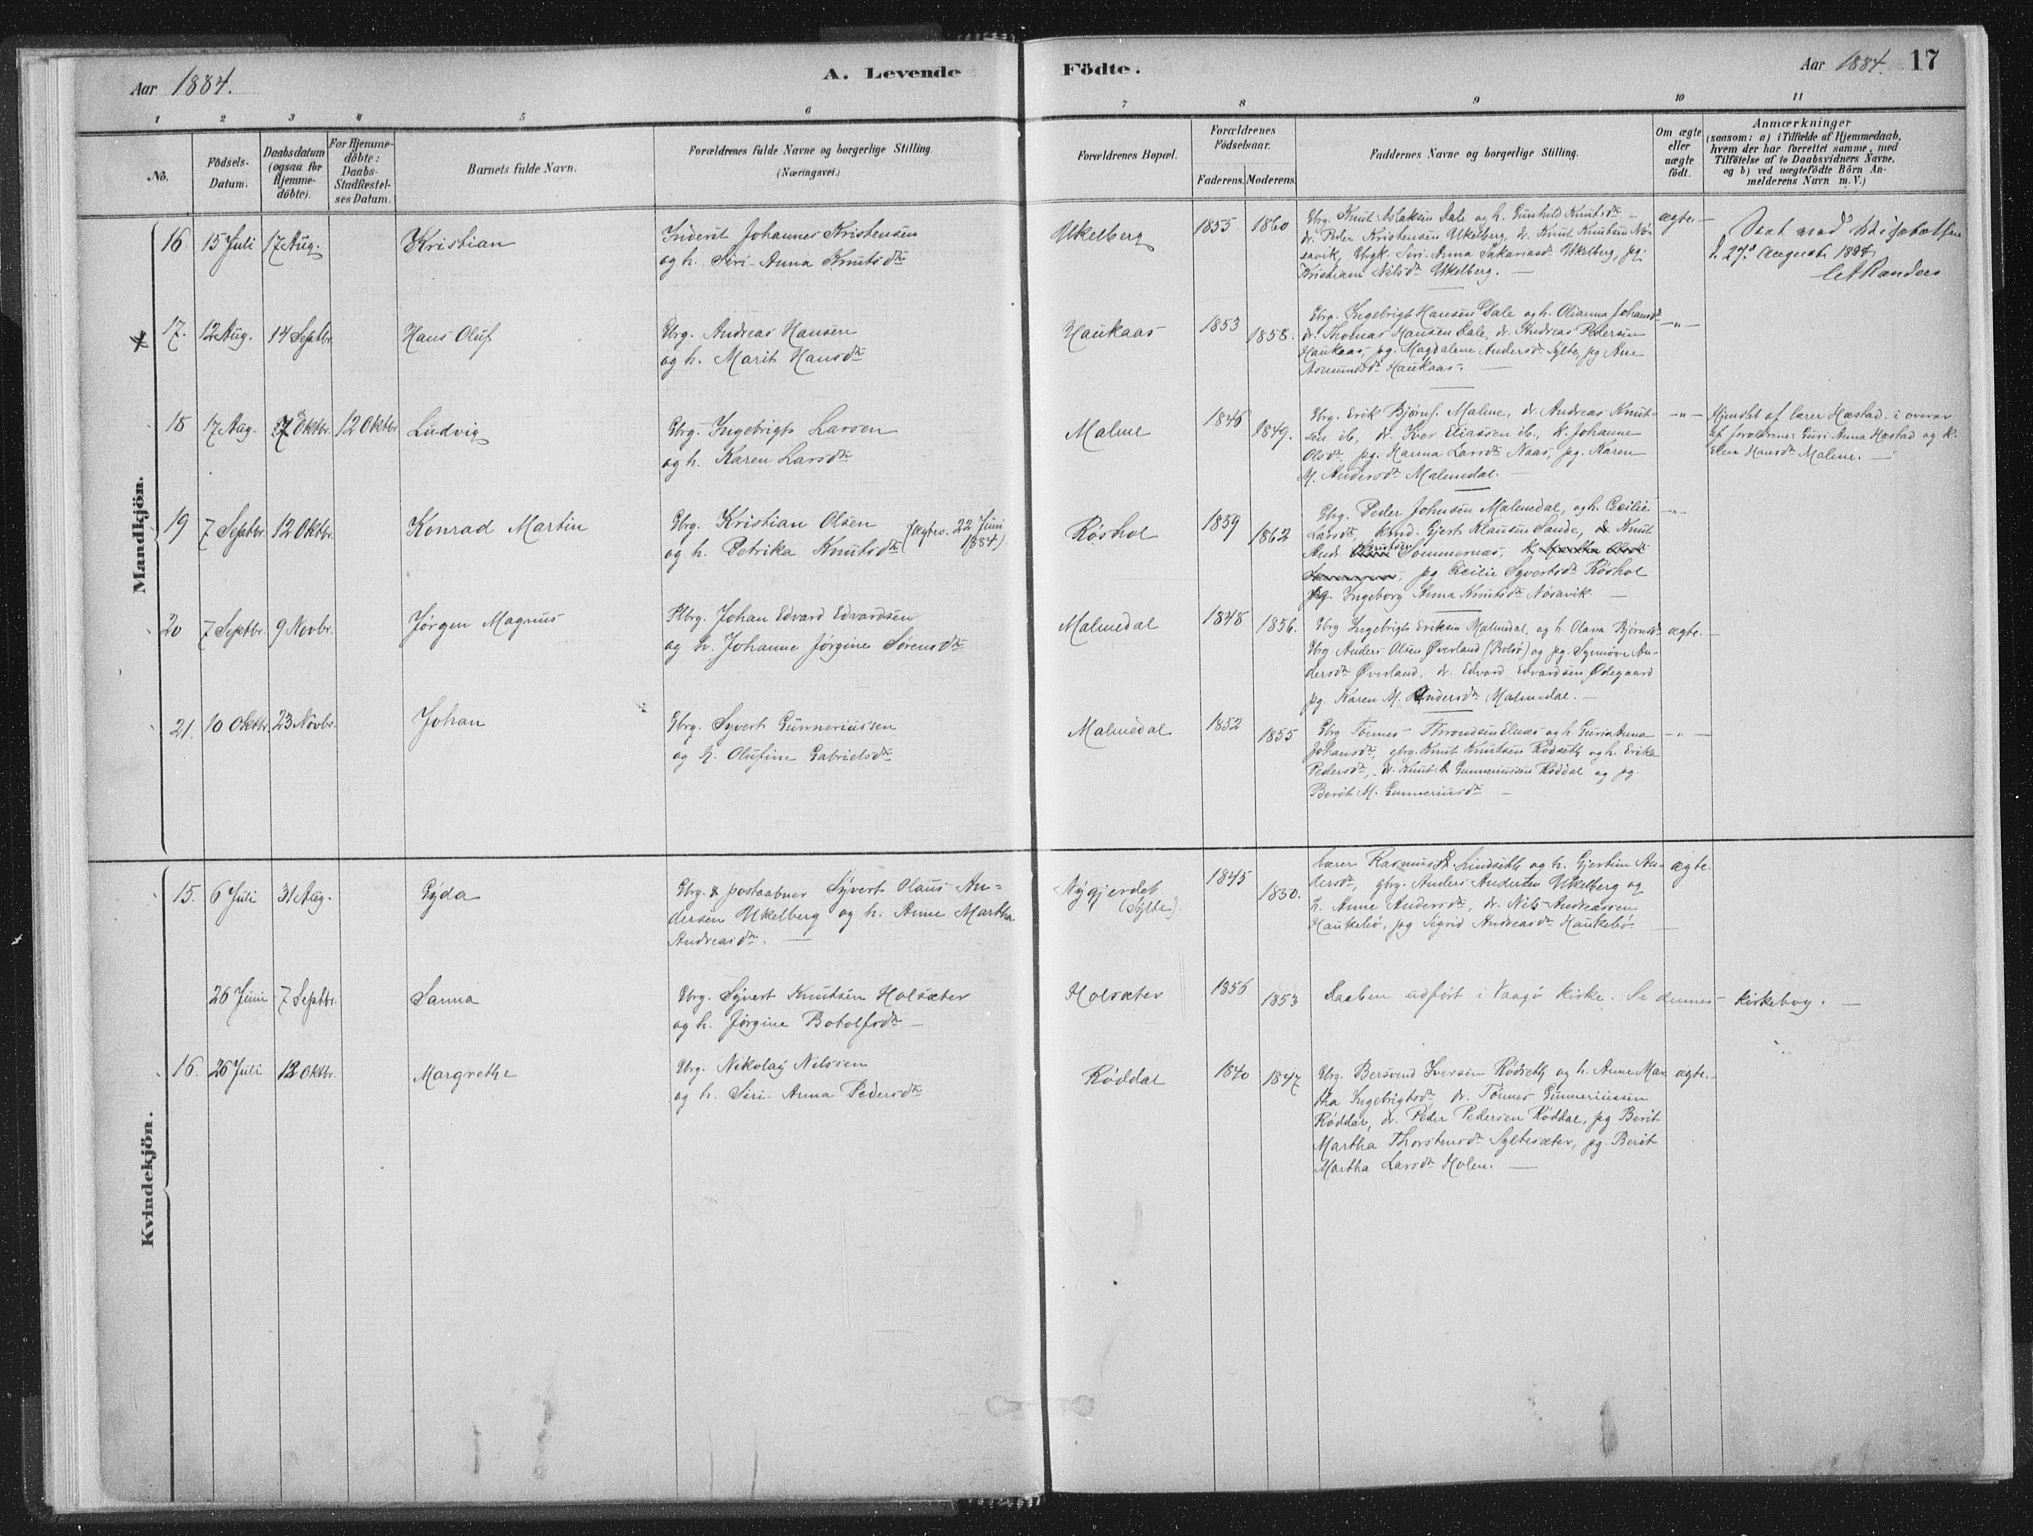 Aar 1884.
A. Levende
Födte.
Aar 1884. 17
1 2 3 4 5 6 7 8 9 10 11
No.
Födsels-
Datum.
Daabsdatum
(ogsaa for
Hjemme-
döbte).
For Hjemme-
döbte:
Daabs-
Stadfæstel-
ses Datum.
Barnets fulde Navn.
Forældrenes fulde Navne og borgerlige Stilling.
(Næringsvei.)
Forældrenes Bopæl.
Forældrenes
Födselsaar.
Faderens. Moderens.
Faddernes Navne og borgerlige Stilling.
Om ægte
eller
uægte
födt.
Anmærkninger
(saasom: a) i Tilfælde af Hjemmedaab,
hvem der har forrettet samme, med
Tilföielse af to Daabsvidners Navne,
og b) ved uægtefödte Börn An-
melderens Navn m. V.)
Mandkjön.
16. 15 Juli 17 Aug. Kristian
Inderst Johannes Kristensen
og h. Siri Anna Knutsdtr
Ukelberg 1855 1860
Gbrg. Knut Aslaksen Dale og h. Gunhild Knutsdtr
dr. Peder Kristensen Ukelberg, dr. Knut Knutsen Nør-
savik, Gbrgk. Siri Anna Sakariasdtr Ukelberg, pg.
Kristiane Nilsdtr Ukelberg. —
ægte.
d. 27de August 1884
17. 12 Aug. 14 Septbr. Hans Oluf
Gbrg. Andreas Hansen
og h. Marit Hansdtr
Haukaas 1853 1858.
Gbrg. Ingebrigt Hansen Dale og h. Olianna Johansdtr
dr. Thomas Hansen Dale, dr. Andreas Pedersen
Haukaas, pg. Magdalene Andersdtr Sylte, pg Ane
Asmundsdtr Haukaas. —
— " —
18 17 Aug. 7 Oktbr. 12 Oktbr Ludvig
Gbrg. Ingebrigt Larsen
og h. Karen Larsdtr
Malme 1846 1849.
Gbrg. Erik Bjørns. Malme, dr. Andreas Knut-
sen ib., dr. Iver Eliassen ib., k. Johanne
Olsdtr, pg. Hanna Larsdtr Naas, pg. Karen
M. Andersdtr Malmedal. —
— " —
Hjmdbt af lærer Hæstad i overvær
af forældrene: Guri Anna Hæstad og k.
Elen Hansdtr Malme. —
19 7 Septbr. 12 Oktbr. Konrad Martin
Gbrg. Kristian Olsen
og h. Petrika Knutsdtr (Ægtev. 22 Juni
1884).
Røshol 1859 1862
Gbrg. Peder Johnsen Malmedal, og h. Cecilie
Larsdtr, kmd. Gjert Klausen Sande, dr Knut
And. Knutsen Sommernæs,
pg Cecilie Syvertsdtr Røshol
pg. Ingeborg Anna Knutsdtr Nøsavik —
— " —
20 7 Septbr. 9 Novbr. Jørgen Magnus
Plbrg. Johan Edvard Edvardsen
og h. Johanne Jørgine Sørensdtr
Malmedal 1848 1856.
Gbrg Ingebrigt Eriksen Malmedal, og h. Olava Bjørnsdtr
Gbrg Anders Olsen Øverland (Bolsø) og pg. Synnøve An-
dersdtr Øverland, dr. Edvard Edvardsen Ødegaard
pg. Karen M. Andersdtr Malmedal. —
ægte —
21. 10 Oktbr. 23 Novbr. Johan
Gbrg. Syvert Gunneriussen
og h. Olufine Gabrielsdtr
Malmedal 1852 1855
Gbrg Tønnes Throndsen Elnæs og h. Guri Anna
Johansdtr, gbrg. Knut Knutsen Rødseth og h. Erika
Pedersdtr, dr. Knut Gunneriussen Røddal og pg.
Berit M. Gunneriusdtr —
— " —
Kvindekjön.
15. 6 Juli 31 Aug. Gyda
Gbrg. & postaabner Syvert Olaus An-
dersen Ukelberg og h. Anne Martha
Andreasdtr. —
Nygjerdet
(Sylte) 1845 1850.
Lærer Rasmus Lindseth og h. Gjertine An-
dersdtr, gbrg. Anders Andersen Ukelberg og
h. Anne Andersdtr, dr. Nils Andreassen
Haukebø, pg Sigrid Andreasdtr Haukebø. —
ægte.
26 Juni 7 Septbr. Sanna
Gbrg. Syvert Knutsen Holsæter
og h. Jørgine Botolfsdtr —
Holsæter 1856 1853
Daaben udført i Vaagø kirke. Se dennes kirkebog. —
16. 26 Juli 12 Oktbr. Margrethe
Gbrg. Nikolay Nilssen
og h. Siri Anna Pedersdtr
Røddal 1840 1847
Gbrg. Bersvend Iversen Rødseth og h. Anne Mar-
tha Ingebrigtsdtr, dr. Tønnes Gunneriussen
Røddal, dr. Peder Pedersen Røddal, pg Berit
Martha Thorstensdtr Syltesæter, pg. Berit
Martha Larsdtr Holen. —
ægte.